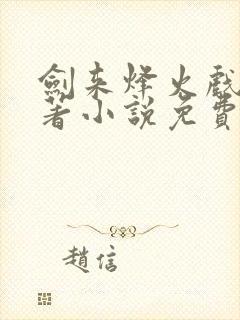 劍来烽火戲
著小說免費
趙信